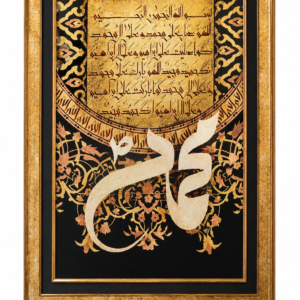 بسم الله الرحمن الرحيم
اللهم صل على محمد و على ال محمد
كما صليت على ابراهيم و على ال ابراهيم
حميد مجيد اللهم بارك على محمد
و على ال محمد كما باركت على ابراهيم
و على ال ابراهيم انك حميد مجيد
محمد